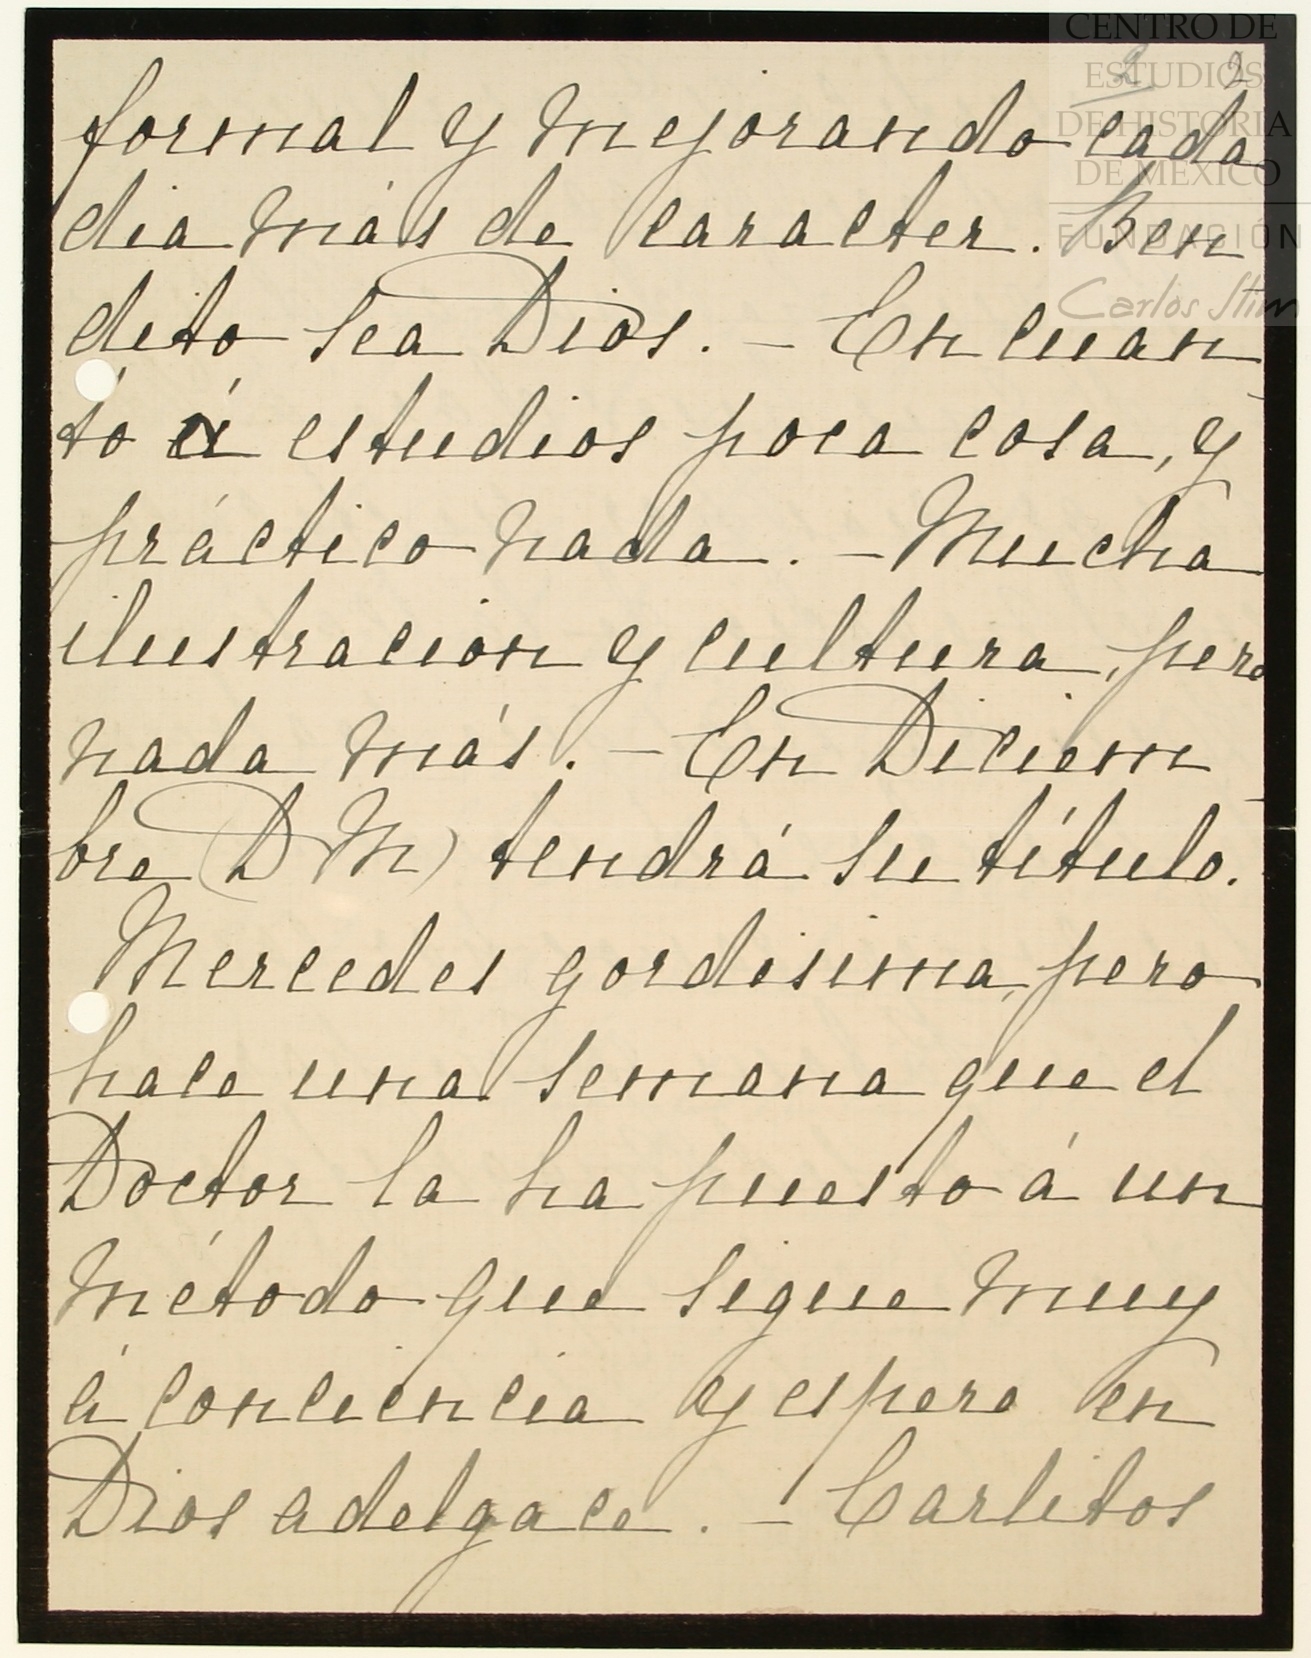 CENTRO DE
ESTUDIOS
DE HISTORIA
DE MÉXICO
FUNDACIÓN
Carlos Slim
2
formal y mejorando cada
dia más de caracter. Ben
dito sea Dios. - En cuan
to á estudios poca cosa, y
práctico nada. - Mucha
ilustracion y cultura, pero
nada más. - En Diciem
bre (D M) tendrá su título.
Mercedes gordisima, pero
hace una semana que el
Doctor la ha puesto á un
método que sigue muy
á conciencia y espero en
Dios adelgace. - Carlitos